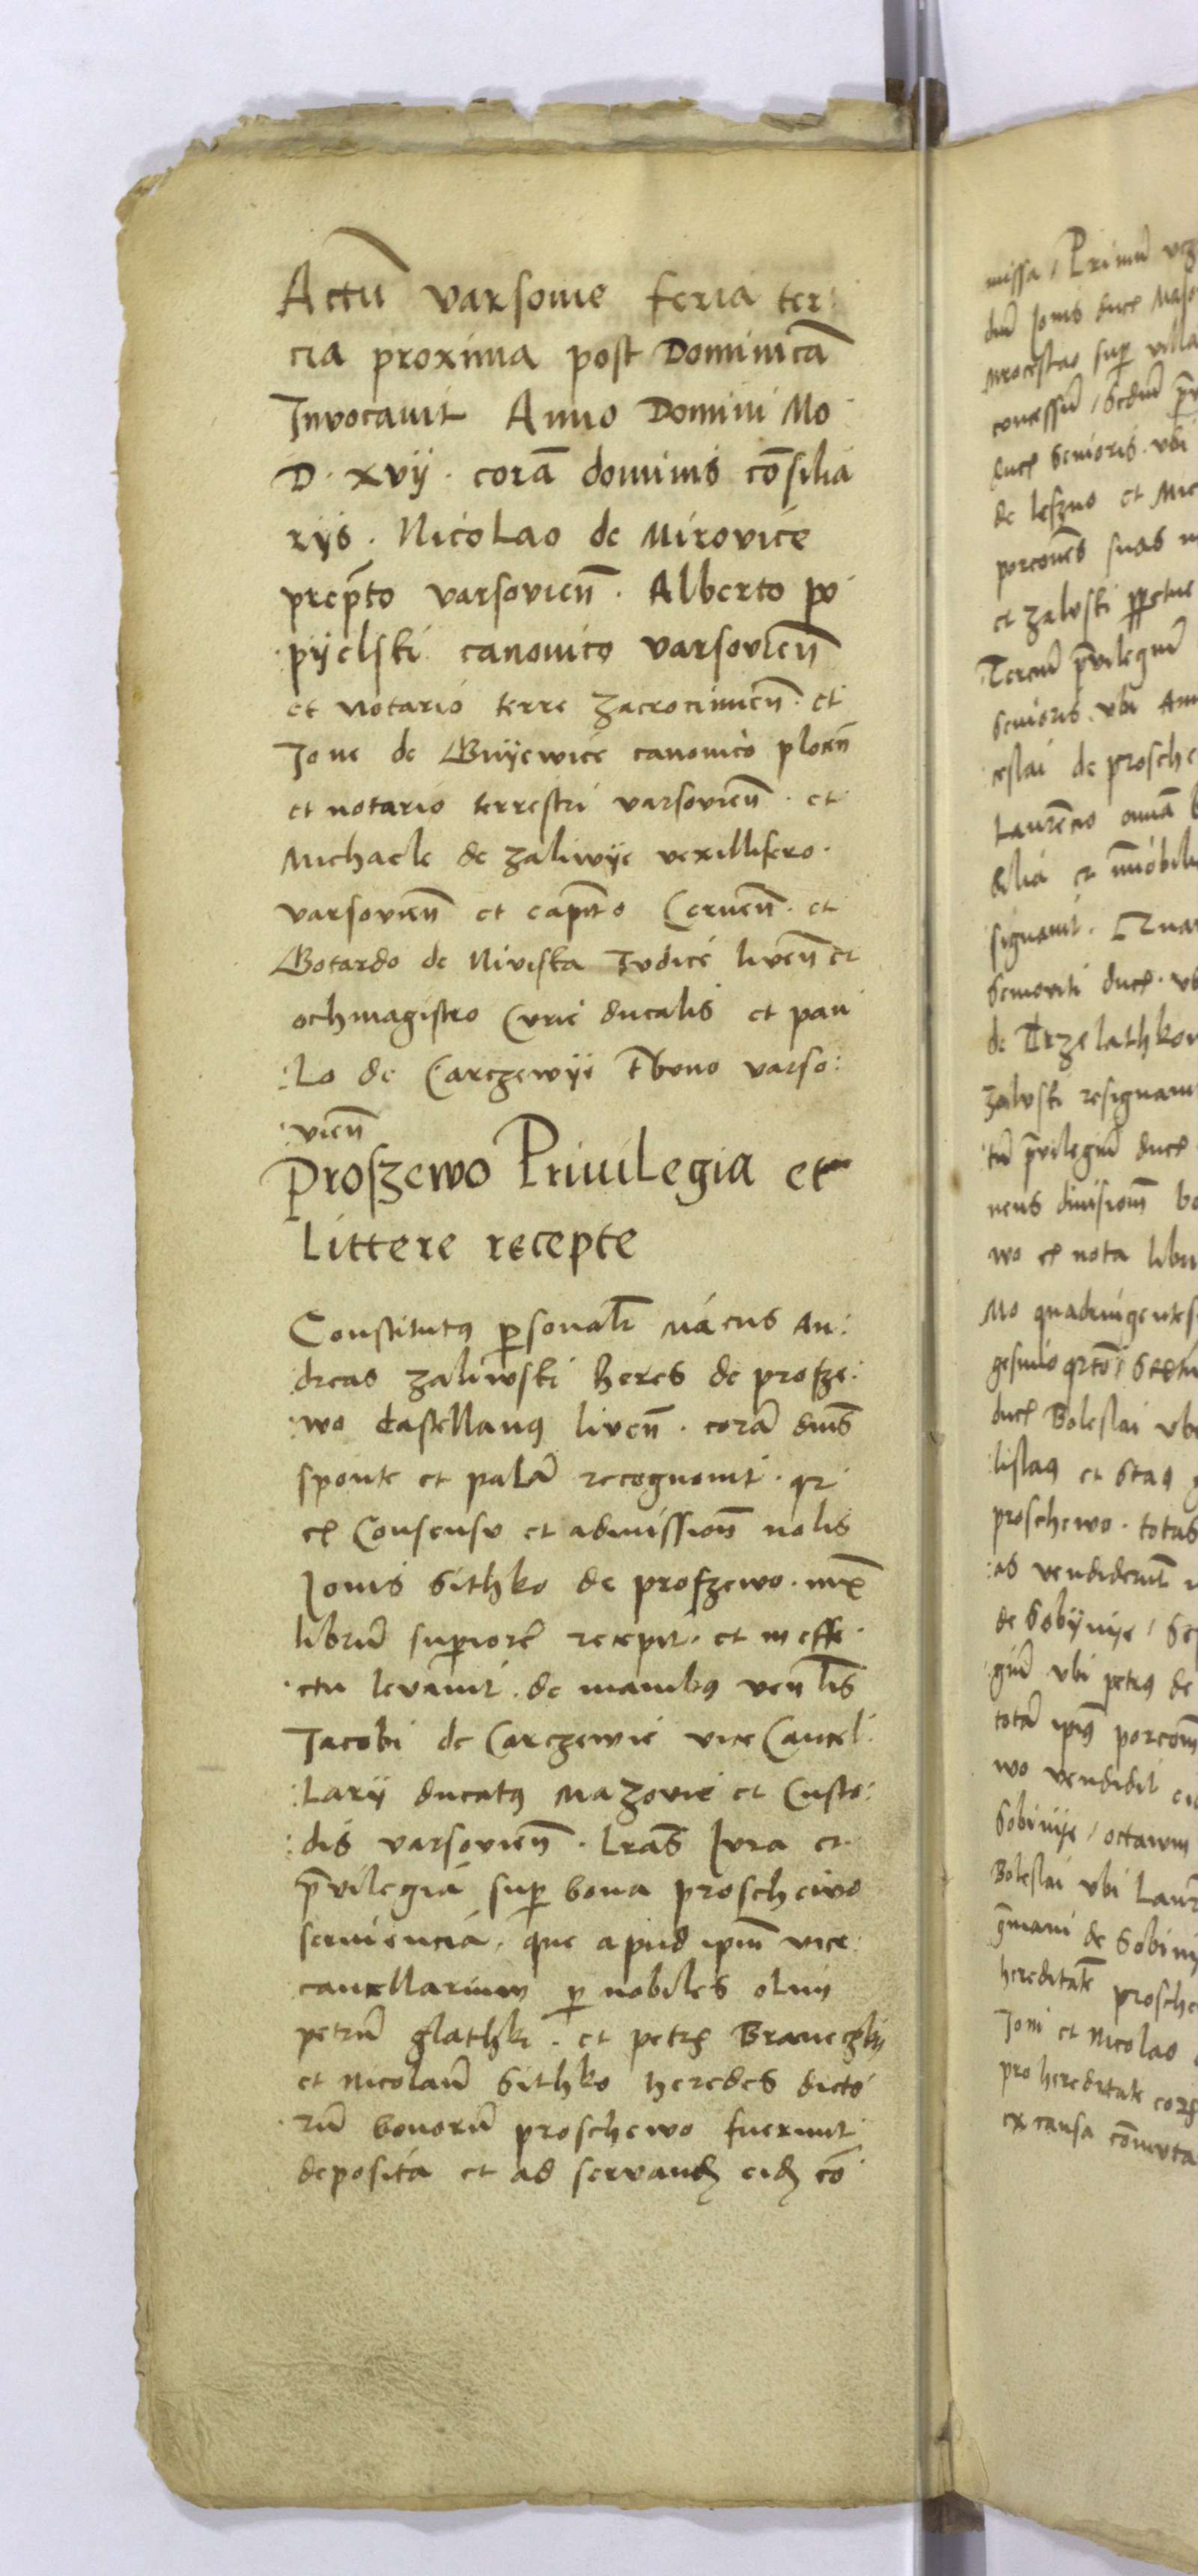 Actū varsovie feria ter:
cia proxima post Dominicā
Invocavit Anno Domini Mo
D. xvij. corā dominis cōsilia
rijs. Nicolao de Mirovice
prep̄to varsovien̄. Alberto po
pyelski canonico varsovien̄
et notario terre zacrocimien̄. et
Joñe de Gnyewice canonico plocen̄
et notario terrestri varsovien̄. et
Michaele de zaliwye vexillifero.
varsovien̄ et capito Cernen̄. et
Gotardo de Niviska Judice liven̄ et
ochmagistro Curie ducalis et pau
:lo de Carczewye t̄buno varso:
:vien̄
Proszewo Privilegia et
littere recepte
Constitutꝰ ꝑsonalr̄ Mācus An:
dreas zaliwski heres de proſze:
:wo Castellanꝰ liven̄. corā dn̄is
sponte et palā recognovit. qr
ex Consensu et admissione nolis
Jonis Sithko de proſzewo. mx̄
librū suꝑiorē recepit. et in effe:
ctu levavit. de manibꝰ ven̄lis
Jacobi de Carczewie vice Cancel:
:larij ducatꝰ Mazovie et Custo:
:dis varsovien̄. Lr̄as Jura et
p̄vilegia suꝑ bona proschewo
serviencia. que apud ipm̄ vice:
cancellarium ꝑ nobiles olim
petrū glathki. et petrꝝ Braneczky
et Nicolaū Sithko heredes dicto
:rū bonorū proschewo fuerunt
deposita et ad servandꝫ eidꝫ cō
missa / Primū
dū Jonis duce Maso
suꝑ villa
concessū / Secdū
ducꝫ Senioris. ubi
de leszno et
porcones suas
et zaluski ꝑpetue
Terciū p̄vilegiū
Senioris. ubi
ceslai de prosche
Laurēcio omnia
bilia et im̄obili
signavit. Quar
Semoviti duce. ub
de Trzelathkow
zaluski resignavit
tū p̄vilegiū duce
nens divisionē bo
wo ex nota libri
Mo quadringentes
gesimo qrto / Sextū
duce Boleslai ubi
lislaꝰ et Staꝰ
proschewo. totas
:as vendiderūt
de Sobynye / Se
giū ubi petrꝰ de
totā ipiꝰ porcom̄
wo vendidit
Sobinye / octavum
Boleslai ubi Laur
de Sobiny
hereditatē prosche
Joni et Nicolao
pro hereditate eorꝫ
ex causa com̄uta